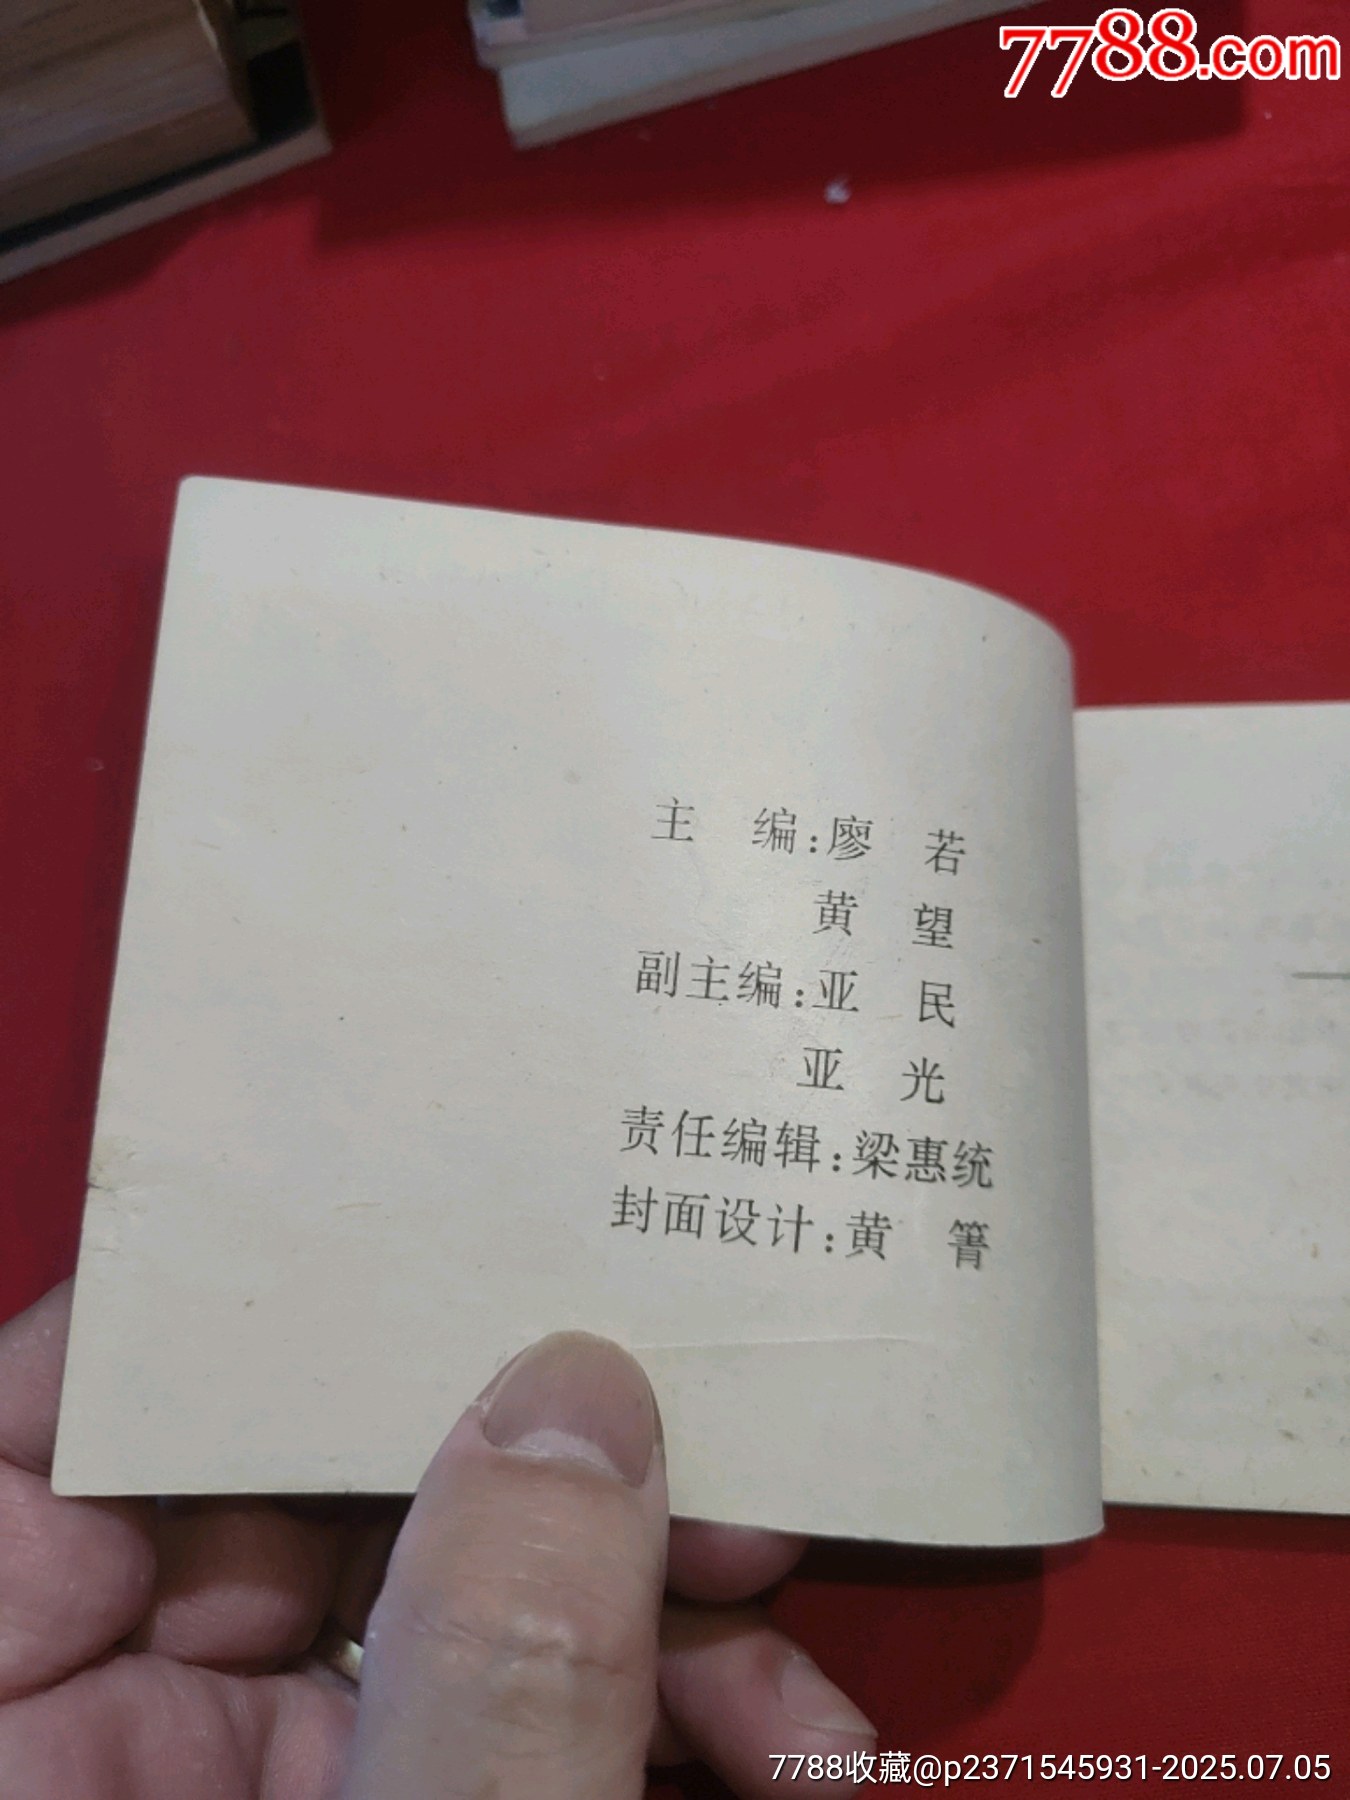 7788.com
主　编:廖　若
黄　望
副主编:亚　民
亚　光
责任编辑:梁惠统
封面设计:黄　箐
7788收藏@p2371545931-2025.07.05